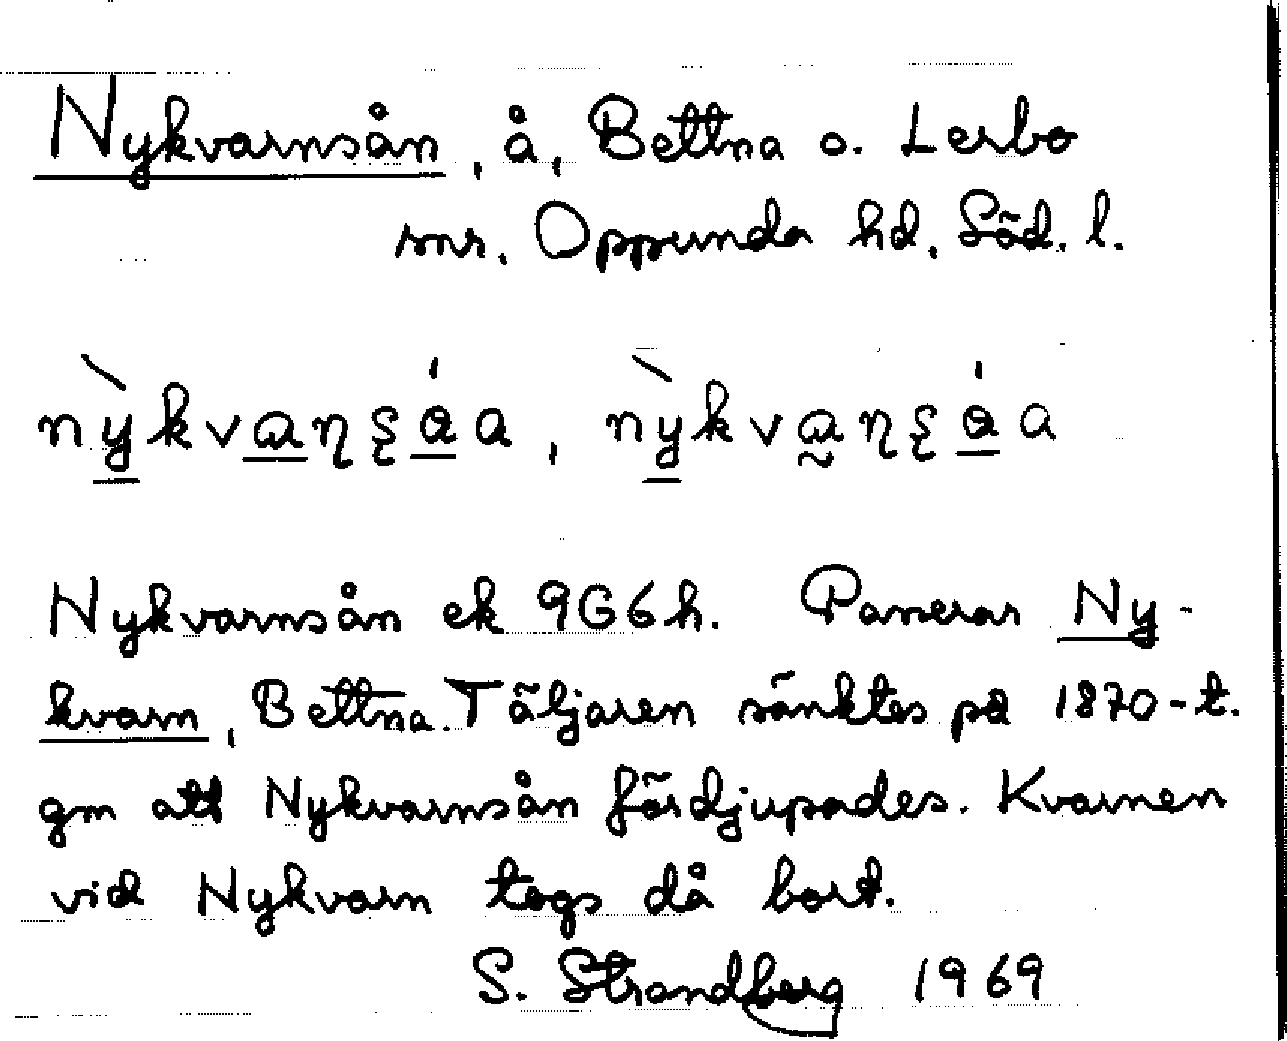 Nykvarnsån, å, Bettna o. Lerbo
snr. Oppunda hd, Söd. l.
Nykvarnsån ek 9G6h. Passerar Ny-
kvarn, Bettna. Täljaren sänktes på 1870-t.
gm att Nykvarnsån fördjupades. Kvarnen
vid Nykvarn togs då bort.
S. Strandberg 1969